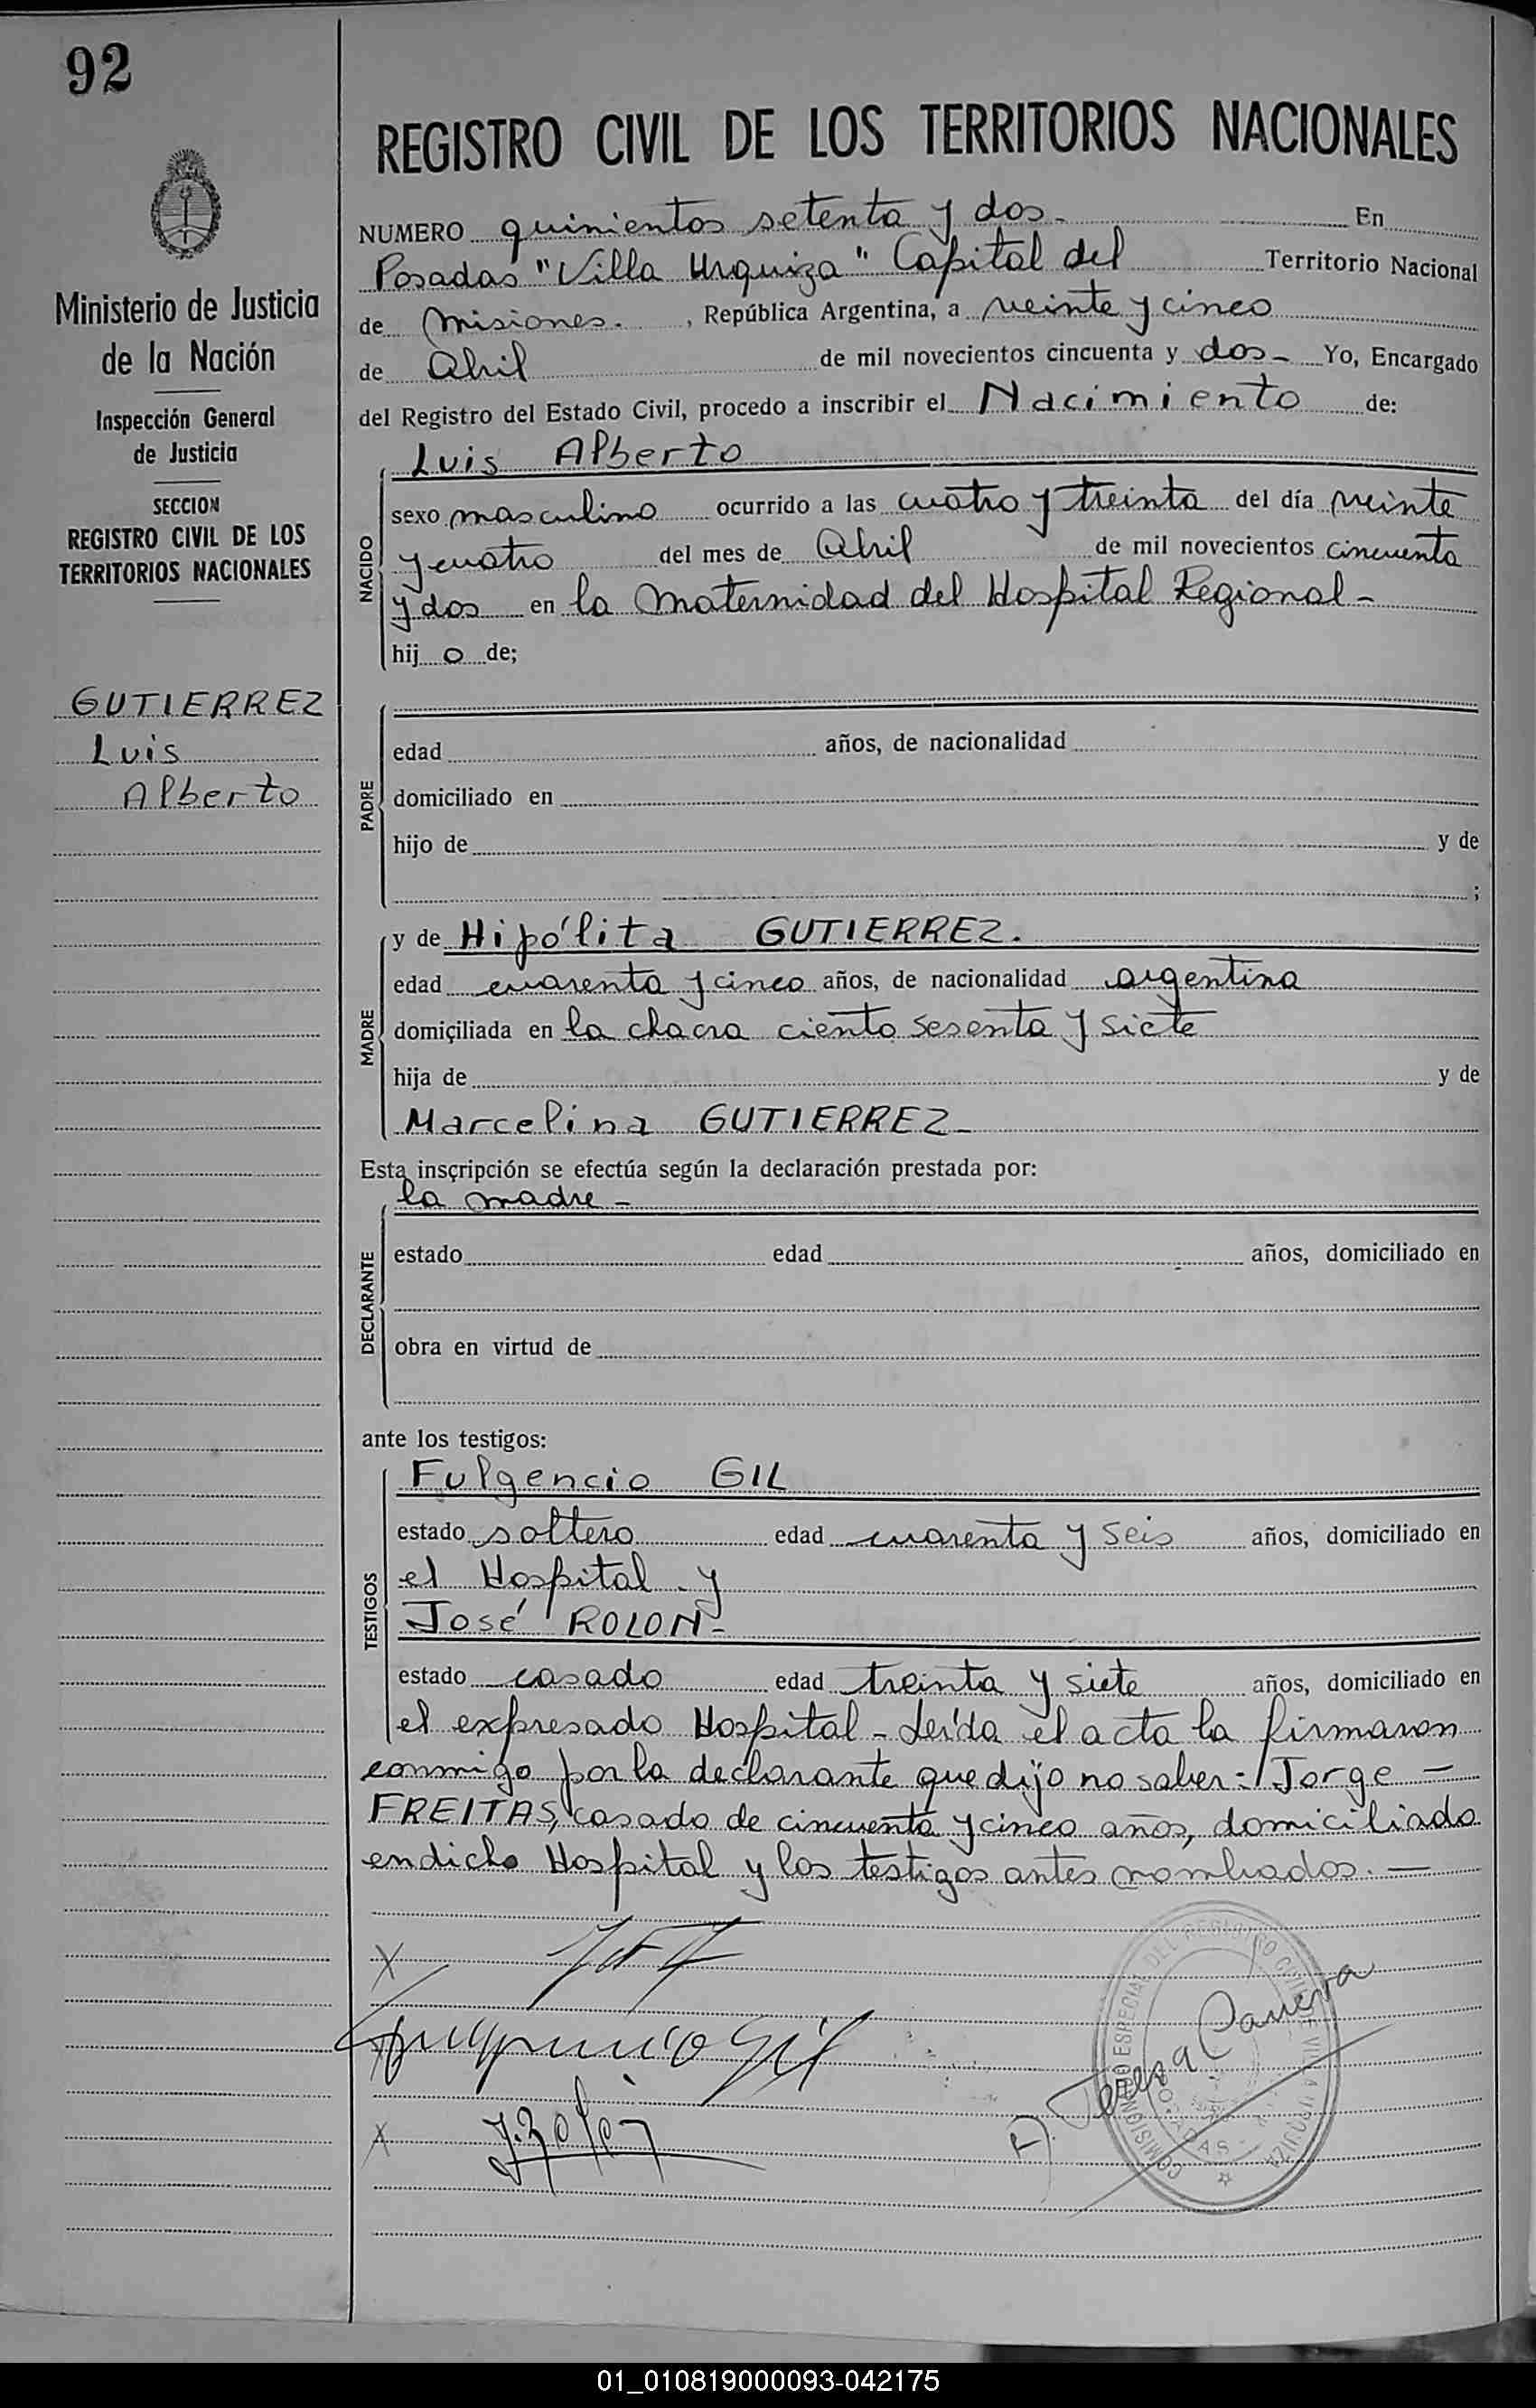 92
REGISTRO CIVIL DE LOS TERRITORIOS NACIONALES
Ministerio de Justicia
de la Nación
Inspección General
de Justicia
SECCION
REGISTRO CIVIL DE LOS
TERRITORIOS NACIONALES
GUTIERREZ
Luis
Alberto
NUMERO quinientos setenta y dos- En
Posadas "Villa Urquiza" Capital del Territorio Nacional
de Misiones. , República Argentina, a veinte y cinco
de Abril de mil novecientos cincuenta y dos- Yo, Encargado
del Registro del Estado Civil, procedo a inscribir el Nacimiento de:
NACIDO
Luis Alberto
sexo masculino ocurrido a las cuatro y treinta del día veinte
y cuatro del mes de Abril de mil novecientos cincuenta
y dos en la Maternidad del Hospital Regional-
hij o de;
PADRE
edad años, de nacionalidad
domiciliado en
hijo de y de
;
MADRE
y de Hipólita GUTIERREZ.
edad cuarenta y cinco años, de nacionalidad argentina
domiciliada en la chacra ciento sesenta y siete
hija de y de
Marcelina GUTIERREZ-
Esta inscripción se efectúa según la declaración prestada por:
la madre-
DECLARANTE
estado edad años, domiciliado en
obra en virtud de
ante los testigos:
TESTIGOS
Fulgencio GIL
estado soltero edad cuarenta y seis años, domiciliado en
el Hospital y
José ROLON-
estado casado edad treinta y siete años, domiciliado en
el expresado Hospital- Leída el acta la firmaron
conmigo por la declarante que dijo no saber: Jorge-
FREITAS, casado de cincuenta y cinco años, domiciliado
en dicho Hospital y los testigos antes nombrados.-
X
Fulgencio Gil
X J. Rolon
Teresa Canerva
COMISIONADO ESPECIAL DEL REGISTRO CIVIL DE VILLA URQUIZA
POSADAS
01_010819000093-042175